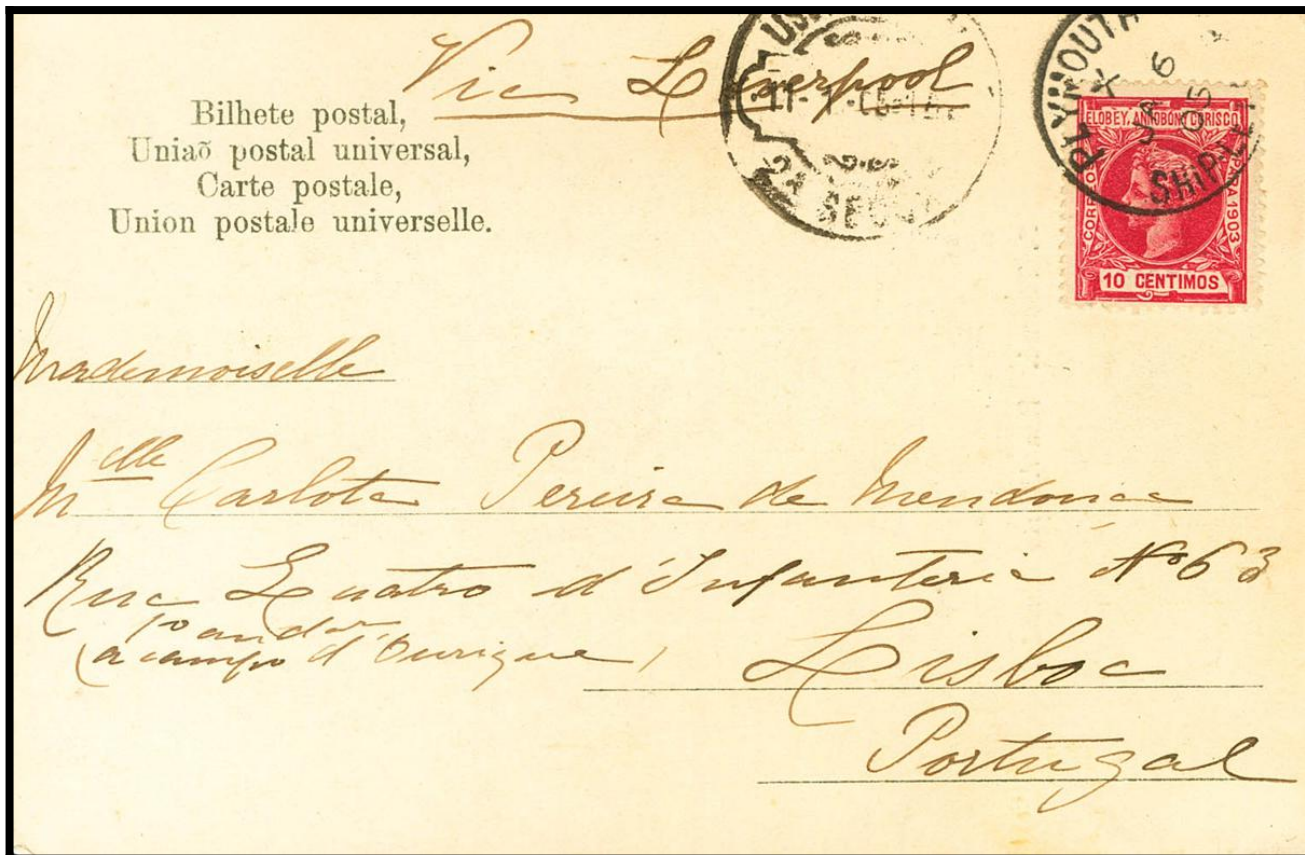 Via Liverpool
Bilhete postal,
Uniaõ postal universal,
Carte postale,
Union postale universelle.
PLYMOUTH
X
JA 6
06
SHIP
ELOBEY, ANNOBÓN Y CORISCO
CORREOS
PARA 1903
10 CENTIMOS
Mademoiselle
Mlle Carlota Pereira de Mendonca
Rua Quatro d'Infanteria No 63
1o andar
(a campo d'Ourique)
Lisboa
Portugal